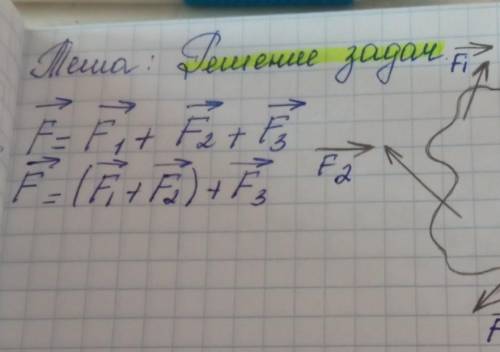 Тема: Решение задач.
F⃗ = F⃗₁ + F⃗₂ + F⃗₃
F⃗ = (F⃗₁ + F⃗₂) + F⃗₃
F⃗₁
F⃗₂
F